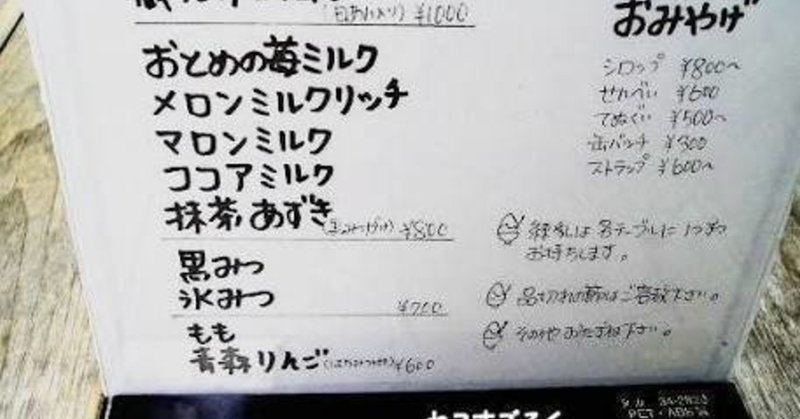 (白あん入り) ¥1000
おとめの苺ミルク
メロンミルクリッチ
マロンミルク
ココアミルク
抹茶あずき ¥800
黒みつ
氷みつ ¥700
もも
青森りんご(はちみつ付) ¥600
おみやげ
シロップ ¥800~
せんべい ¥600
てぬぐい ¥500~
缶バッチ ¥300
ストラップ ¥600~
は各テーブルに1つずつ
お持ちします。
品切れの節はご容赦下さい。
その他おたずね下さい。